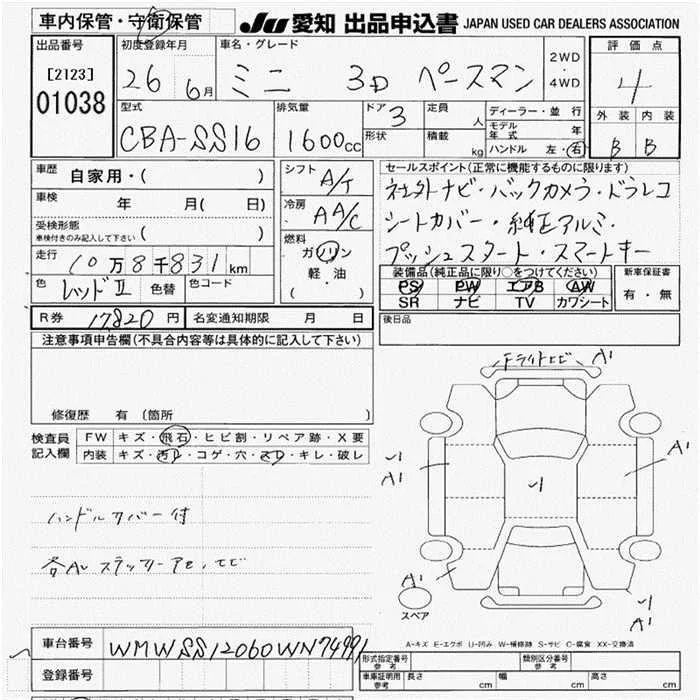 車内保管・守衛保管
JU 愛知 出品申込書 JAPAN USED CAR DEALERS ASSOCIATION
出品番号 初度登録年月 車名・グレード 2WD・4WD 評価点
[2123] 26 6月 ミニ 3D ペースマン 4
01038
型式 排気量 ドア 3 定員 人 ディーラー・並行 外装 内装
CBA-SS16 1600cc 形状 積載 kg モデル年式 年 B B
ハンドル 左・右
車歴 自家用・( ) シフト A/T セールスポイント(正常に機能するものに限ります)
車検 年 月( 日) 冷房 AA/C 社外ナビ・バックカメラ・ドラレコ
受検形態 シートカバー・純正アルミ・
車検付きのみ記入して下さい ( ) 燃料 ガソリン プッシュスタート・スマートキー
走行 10万8千831km 軽・油 装備品(純正品に限り○をつけてください) 新車保証書
色 レッドII 色替 色コード ( ・ ) PS PW エアB AW 有・無
SR ナビ TV カワシート
R券 17,820円 名変通知期限 月 日 後日品
注意事項申告欄(不具合内容等は具体的に記入して下さい)
FライトヒビA1
修復歴 有 (箇所 )
検査員記入欄 FW キズ・飛石・ヒビ割・リペア跡・X要
内装 キズ・汚レ・コゲ・穴・スレ・キレ・破レ
A1
A1
ハンドルカバー付
A1
A1
スペア
車台番号 WMWSS12060WN74991
A-キズ E-エクボ U-凹み W-補修跡 S-サビ C-腐食 XX-交換済
登録番号
形式指定番号 参考 類別区分番号 参考
車庫証明用参考 長さ cm 幅 cm 高さ cm